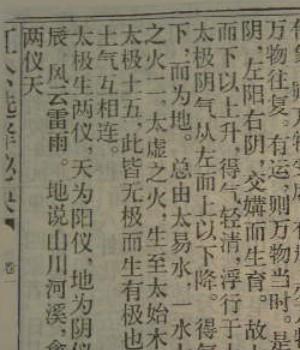 万物往复。有运,则万物当时。是
阴,左阳右阴,交媾而生育。故
而下以上升,得气轻清,浮行于
太极阴气从左而上以下降。得气
下,而为地。总由太易水,一水
之火二,太虚之火,生至太始木
太极十五,此皆无极而生有极也
土气互相连。
太极生两仪,天为阳仪,地为阴仪
辰、风云雷雨。地说山川河溪,禽
两仪天
公选择秘 卷一